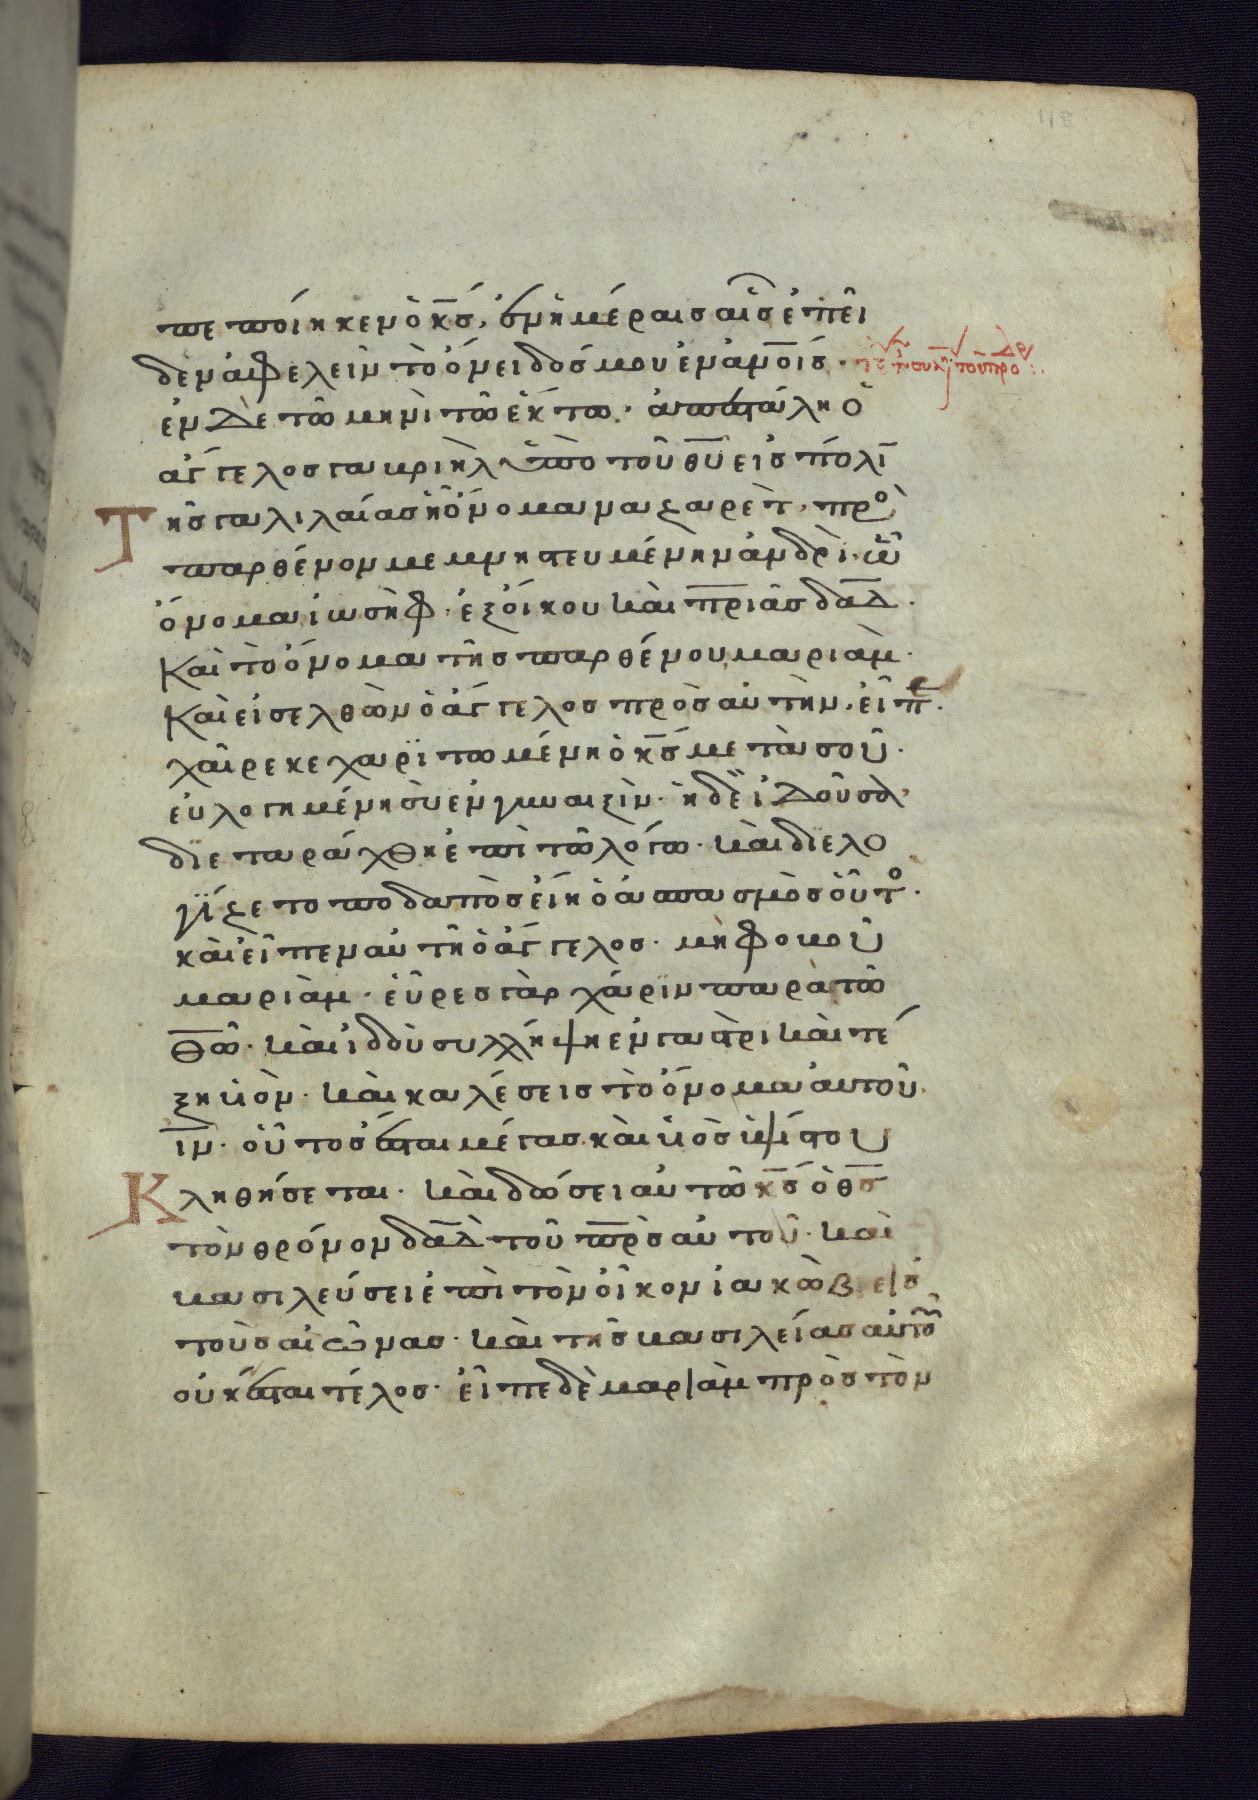 πεποίηκεν ὁ κ̅ς̅, ἐν ἡμέραις αἷς ἐπεῖ
δεν ἀφελεῖν τὸ ὄνειδός μου ἐν ἀν̅οις·
ἐν δὲ τῶ μηνὶ τῶ ἕκτω· ἀπεστάλη ὁ
ἄγγελος γαβριὴλ ὑπὸ τοῦ θ̅υ̅ εἰς πόλι̅
τῆς γαλιλαίας ἧ ὄνομα ναζαρέτ, πρὸ
παρθένον μεμνηστευμένην ἀνδρὶ, ὧ
ὄνομα ἰωσὴφ· ἐξ οἴκου καὶ πριᾶς δα̅δ·
Καὶ τὸ ὄνομα τῆς παρθένου μαριὰμ·
Καὶ εἰσελθὼν ὁ ἄγγελος πρὸς αὐτὴν, εἶπε·
χαῖρε κεχαριτωμένη ὁ κ̅ς̅ μετὰ σοῦ·
εὐλογημένη σὺ ἐν γυναιξὶν· ἡ δὲ ἰδοῦσα
διεταράχθη ἐπὶ τῶ λόγω· καὶ διελο
γίζετο ποδαπὸς εἴη ὁ ἀσπασμὸς οὗτο·
καὶ εἶπεν αὐτῆ ὁ ἄγγελος· μὴ φοβοῦ
μαριὰμ· εὗρες γὰρ χάριν παρὰ τῶ
θ̅ω̅· καὶ ἰδοὺ συλλήψη ἐν γαστρὶ καὶ τέ
ξη υἱὸν· καὶ καλέσεις τὸ ὄνομα αὐτοῦ
ι̅ν̅· οὗτος ἔσται μέγας καὶ υἱὸς ὑψίστου
Κληθήσεται· καὶ δώσει αὐτῶ κ̅ς̅ ὁ θ̅ς̅
τὸν θρόνον δα̅δ τοῦ π̅ρ̅ς αὐτοῦ· καὶ
βασιλεύσει ἐπὶ τὸν οἶκον ἰακὼβ εἰς
τοὺς αἰῶνας· καὶ τῆς βασιλείας αὐτοῦ
οὐκ ἔσται τέλος· εἶπε δὲ μαριὰμ πρὸς τὸν